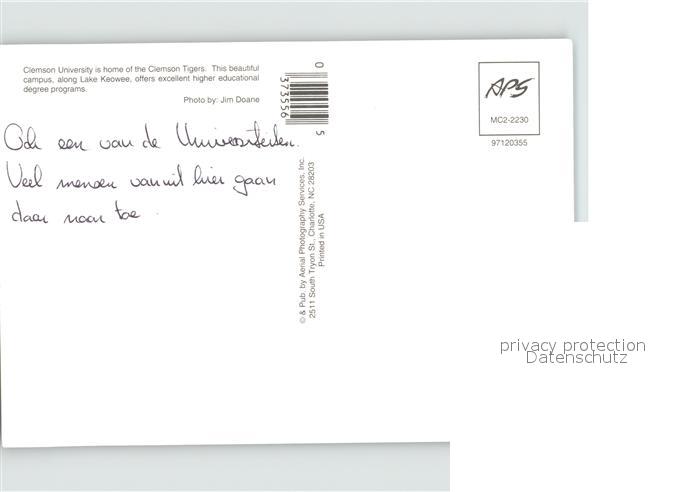 Clemson University is home of the Clemson Tigers. This beautiful
campus, along Lake Keowee, offers excellent higher educational
degree programs.
Photo by: Jim Doane
Ook een van de Universiteiten.
Veel mensen vanuit hier gaan
daar naar toe.
0 373556 5
© & Pub. by Aerial Photography Services, Inc.
2511 South Tryon St., Charlotte, NC 28203
Printed in USA
APS
MC2-2230
97120355
privacy protection
Datenschutz